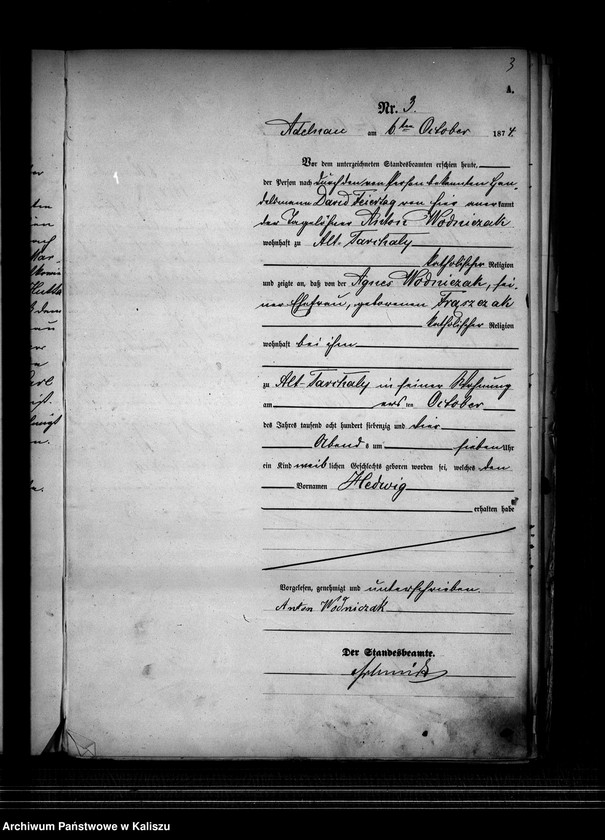 3
A.
Nr. 3.
Adelnau am 6ten October 1874.
Vor dem unterzeichneten Standesbeamten erschien heute,
der Person nach durch den von Person bekannten Han
delsmann David Feiertag von hier anerkannt
der Tagelöhner Anton Wodniczak
wohnhaft zu Alt-Tarchaly
katholischer Religion
und zeigte an, daß von der Agnes Wodniczak, sei-
ner Ehefrau, geborenen Fraszczak
katholischer Religion
wohnhaft bei ihm
zu Alt-Tarchaly in seiner Wohnung
am ersten October
des Jahres tausend acht hundert siebenzig und vier
Abends um sieben Uhr
ein Kind weiblichen Geschlechts geboren worden sei, welches den
Vornamen Hedwig
erhalten habe
Vorgelesen, genehmigt und unterschrieben.
Anton Wodniczak
Der Standesbeamte.
Archiwum Państwowe w Kaliszu